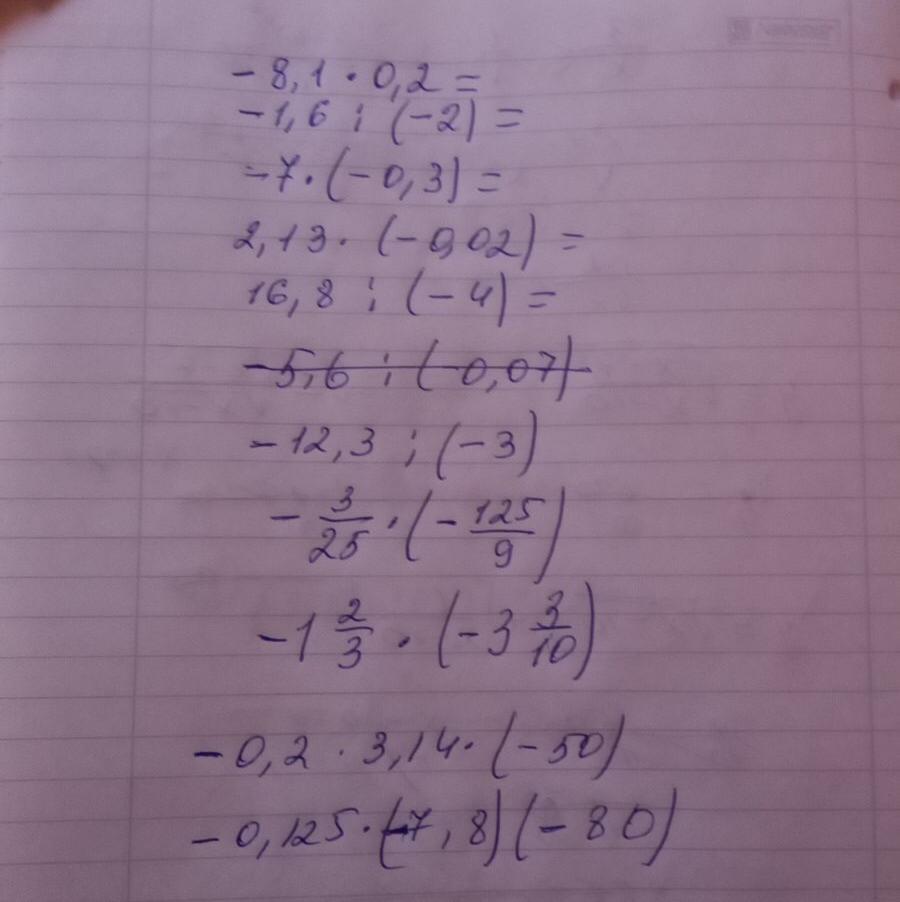 -8,1 · 0,2 =
-1,6 : (-2) =
-7 · (-0,3) =
2,13 · (-0,02) =
16,8 : (-4) =
-5,6 : (-0,07)
-12,3 : (-3)
- 3/25 · (- 125/9)
-1 2/3 · (-3 3/10)
-0,2 · 3,14 · (-50)
-0,125 · (-7,8) (-80)